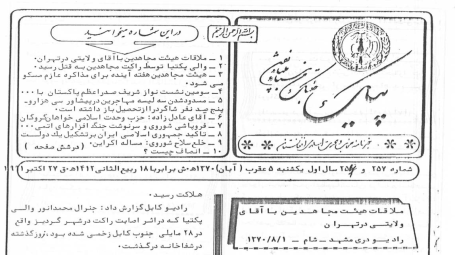 بسم الله الرحمن الرحیم
در این شماره میخوانید
۱ - ملاقات هیئت مجاهدین با آقای ولایتی درتهران.
۲ - والی پکتیا توسط راکت مجاهدین به قتل رسید.
۳ - هیئت مجاهدین هفته آینده برای مذاکره عازم مسکو
می شود.
۴ - سومین نشست نواز شریف صدراعظم پاکستان با ...
۵ - مسدودشدن سه لیسه مهاجرین درپیشاور سی هزارو-
پنجصد نفر شاگردرا ازتحصیل باز داشته است.
۶ - آقای عادل زاده: حزب وحدت اسلامی خواهان گروگان
۷ - فروپاشی شوروی و سرنوشت جنگ افزارهای اتمی ...
۸ - تاکید جمهوری اسلامی ایران برتشکیل یک دولت
۹ - خلع سلاح شوروی: مساله اکراین. ( درشش صفحه )
۱۰ - انصاف چیست ؟
پیک
شماره ۲۵۷ و ۲۵۸ سال اول یکشنبه ۵ عقرب ( آبان) ۱۳۷۰هـ.ش برابربا ۱۸ ربیع الثانی ۱۴۱۲هـ.ق ۲۷ اکتبر ۱۹۹۱
ملاقات هیئت مجاهدین با آقای
ولایتی درتهران
رادیو دری مشهد - شام - ۱۳۷۰/۸/۱
هلاکت رسید.
رادیو کابل گزارش داد: جنرال محمدانور والی
پکتیا که دراثر اصابت راکت درشهر گردیز واقع
در ۲۸ مایلی جنوب کابل زخمی شده بود، روزگذشته
درشفاخانه درگذشت.